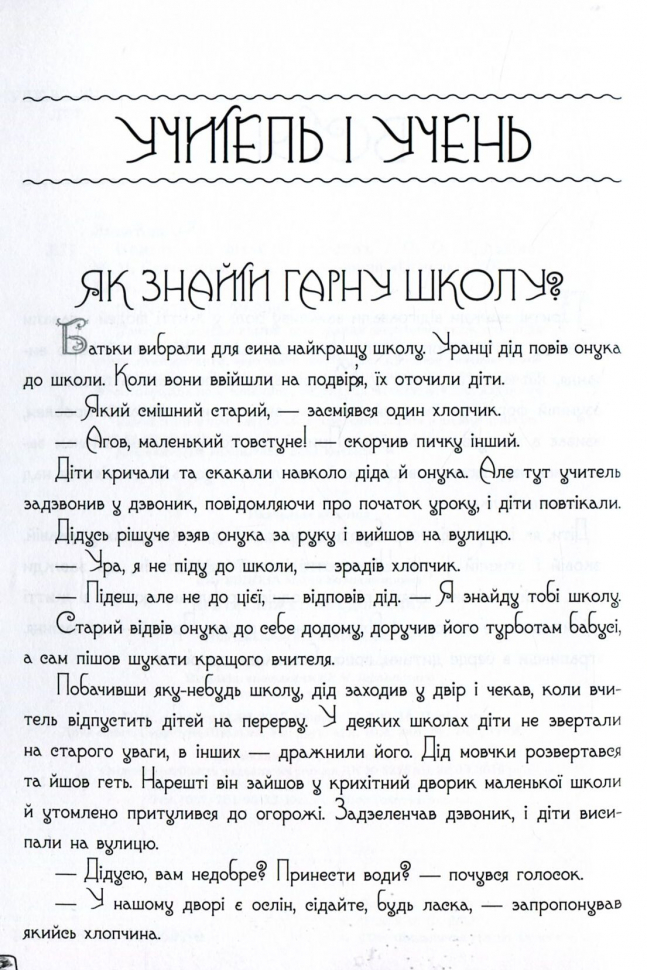 УЧИТЕЛЬ І УЧЕНЬ
ЯК ЗНАЙТИ ГАРНУ ШКОЛУ?
Батьки вибрали для сина найкращу школу. Уранці дід повів онука
до школи. Коли вони ввійшли на подвір'я, їх оточили діти.
— Який смішний старий, — засміявся один хлопчик.
— Агов, маленький товстуне! — скорчив пичку інший.
Діти кричали та скакали навколо діда й онука. Але тут учитель
задзвонив у дзвоник, повідомляючи про початок уроку, і діти повтікали.
Дідусь рішуче взяв онука за руку і вийшов на вулицю.
— Ура, я не піду до школи, — зрадів хлопчик.
— Підеш, але не до цієї, — відповів дід. — Я знайду тобі школу.
Старий відвів онука до себе додому, доручив його турботам бабусі,
а сам пішов шукати кращого вчителя.
Побачивши яку-небудь школу, дід заходив у двір і чекав, коли вчи-
тель відпустить дітей на перерву. У деяких школах діти не звертали
на старого уваги, в інших — дражнили його. Дід мовчки розвертався
та йшов геть. Нарешті він зайшов у крихітний дворик маленької школи
й утомлено притулився до огорожі. Задзеленчав дзвоник, і діти виси-
пали на вулицю.
— Дідусю, вам недобре? Принести води? — почувся голосок.
— У нашому дворі є ослін, сідайте, будь ласка, — запропонував
якийсь хлопчина.